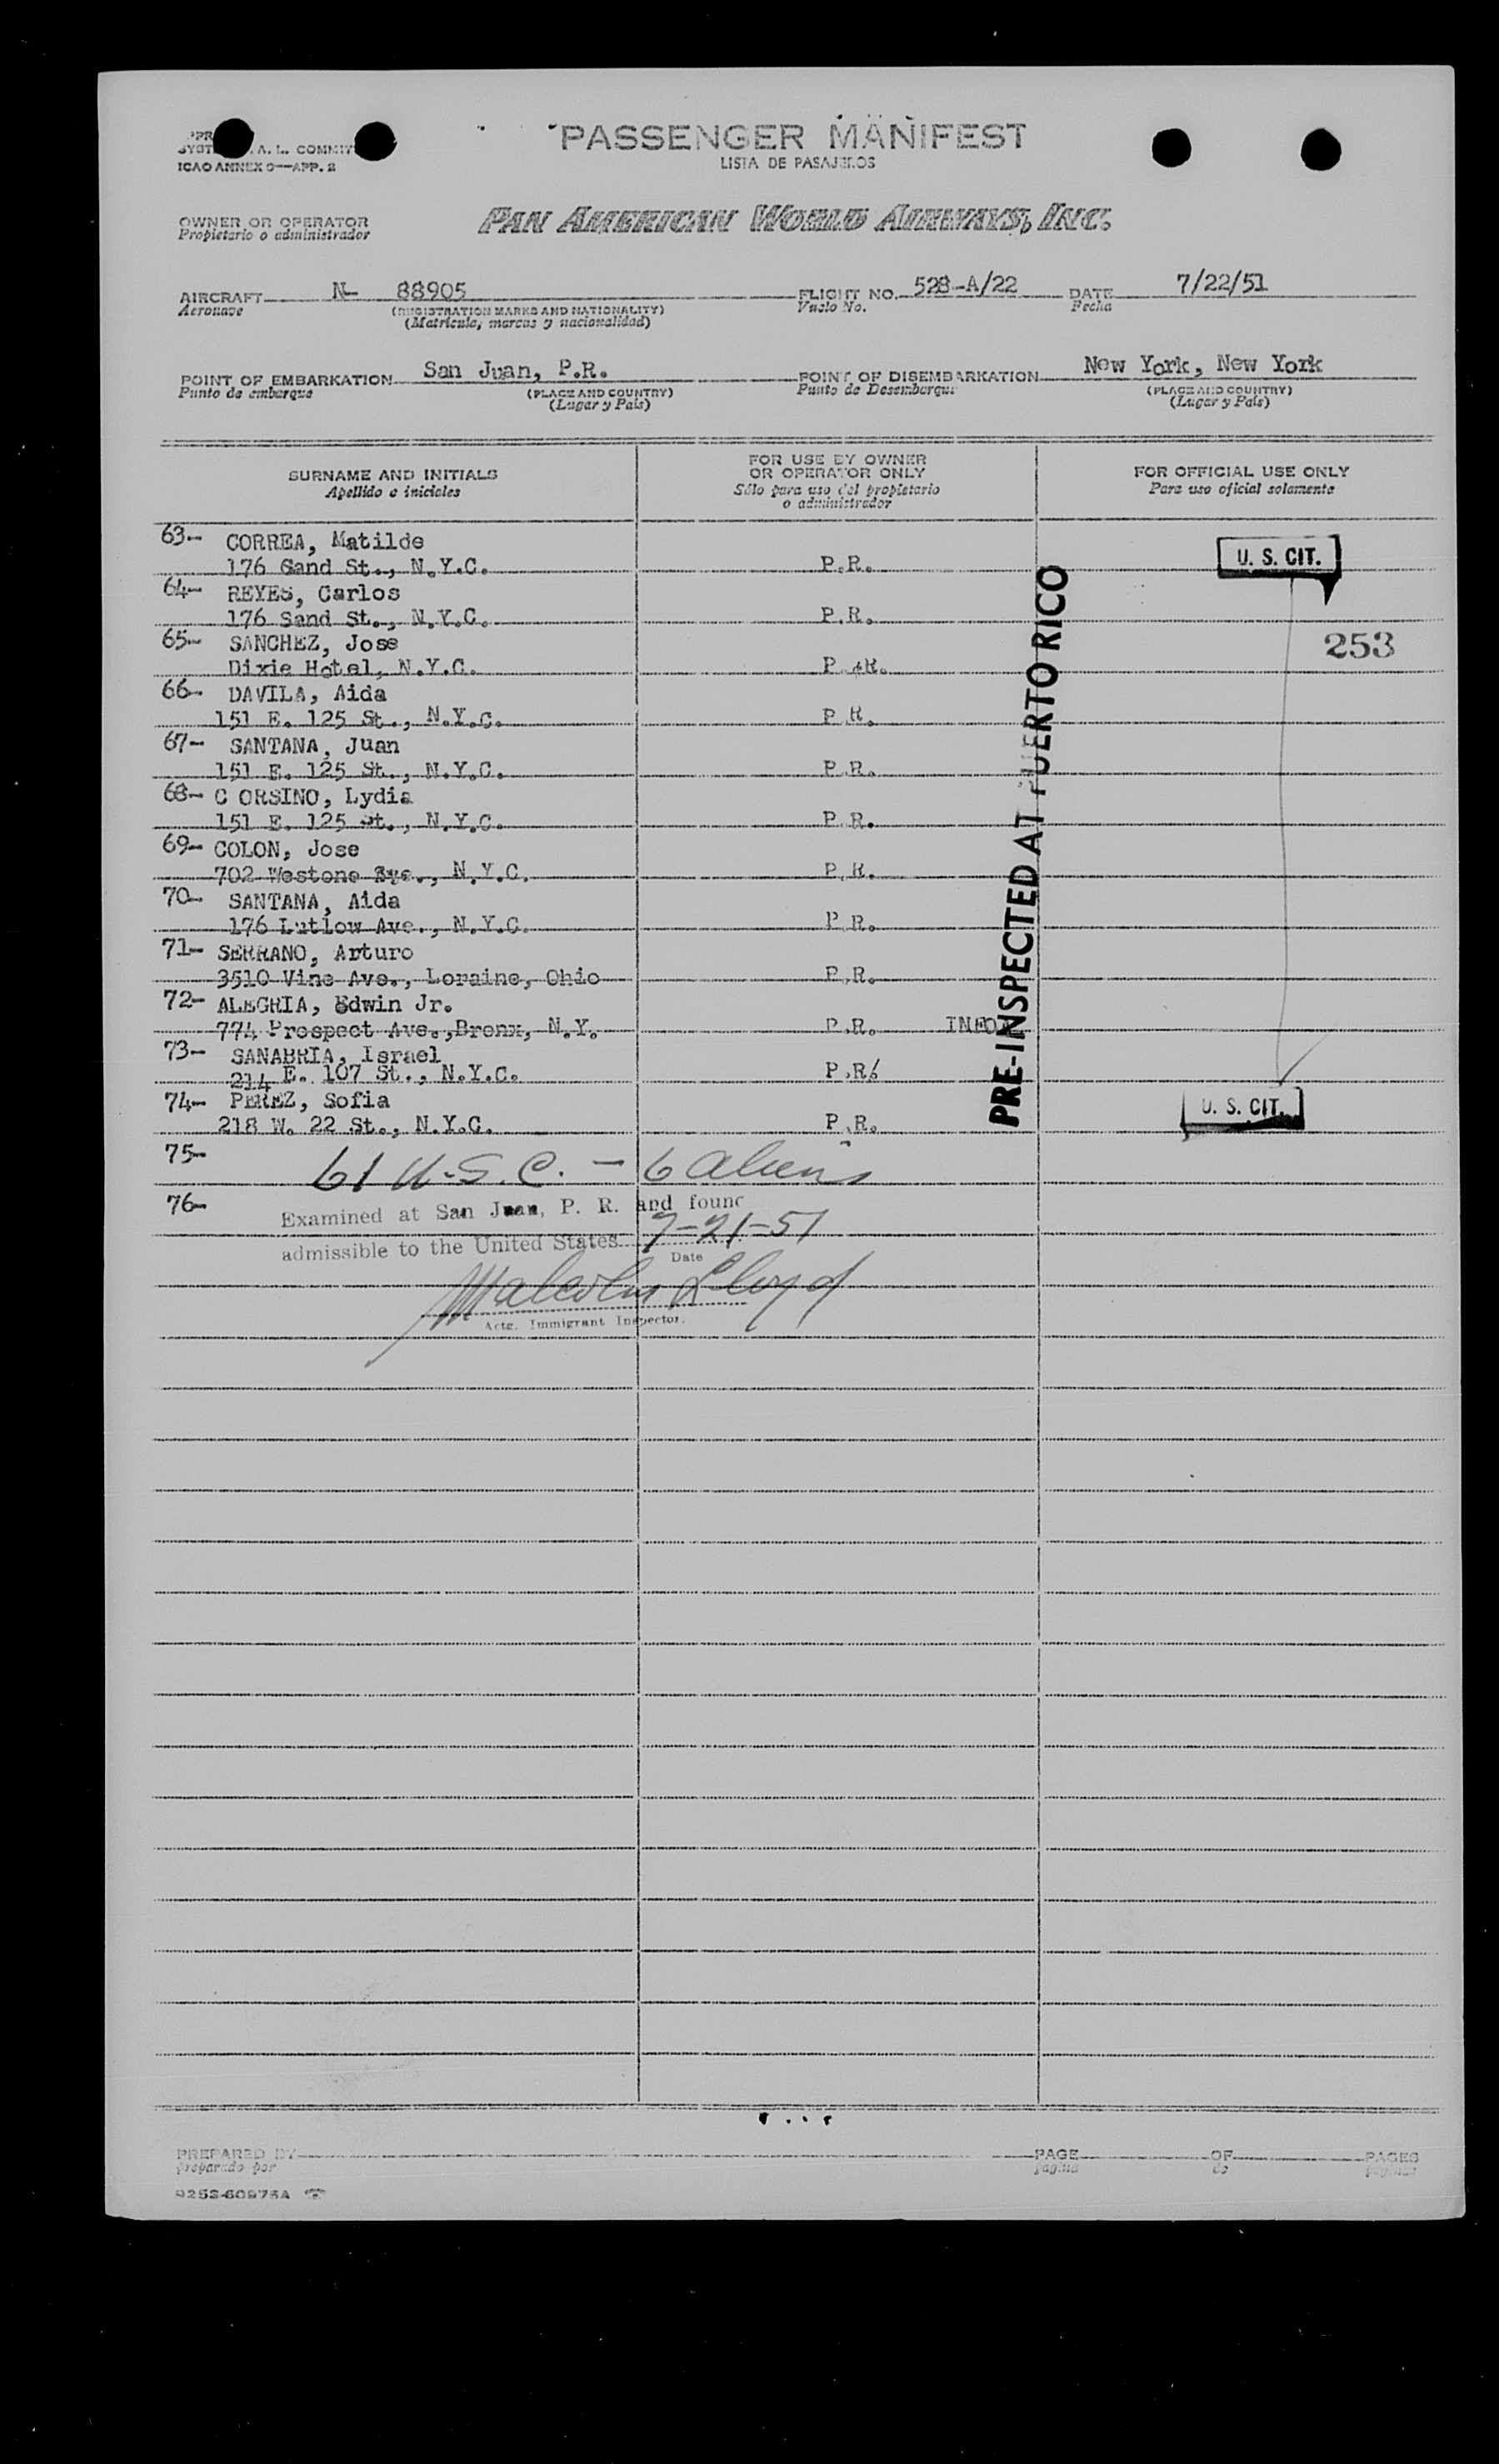 PASSENGER MANIFEST
LISTA DE PASAJEROS
A. L. COMMIT
ICAO ANNEX 9—APP. 2
OWNER OR OPERATOR
Propietario o administrador
PAN AMERICAN WORLD AIRWAYS, INC.
AIRCRAFT N- 88905 FLIGHT NO. 528-A/22 DATE 7/22/51
Aeronave (REGISTRATION MARKS AND NATIONALITY) Vuelo No. Fecha
(Matrícula, marcas y nacionalidad)
POINT OF EMBARKATION San Juan, P.R. POINT OF DISEMBARKATION New York, New York
Punto de embarque (PLACE AND COUNTRY) Punto de Desembarque (PLACE AND COUNTRY)
(Lugar y País) (Lugar y País)
SURNAME AND INITIALS
Apellido e iniciales
FOR USE BY OWNER
OR OPERATOR ONLY
Sólo para uso del propietario
o administrador
FOR OFFICIAL USE ONLY
Para uso oficial solamente
63- CORREA, Matilde
176 Sand St., N.Y.C. P.R. U. S. CIT.
64- REYES, Carlos
176 Sand St., N.Y.C. P.R.
65- SANCHEZ, Jose 253
Dixie Hotel, N.Y.C. P.R.
66- DAVILA, Aida
151 E. 125 St., N.Y.C. P.R.
67- SANTANA, Juan
151 E. 125 St., N.Y.C. P.R.
68- C ORSINO, Lydia
151 E. 125 St., N.Y.C. P.R.
69- COLON, Jose
702 Westone , N.Y.C. P.R.
70- SANTANA, Aida
176 Lutlow Ave., N.Y.C. P.R.
71- SERRANO, Arturo
3510 Vine Ave., Loraine, Ohio P.R.
72- ALEGRIA, Edwin Jr.
774 Prospect Ave.,Bronx, N.Y. P.R.
73- SANABRIA, Israel
214 E. 107 St., N.Y.C. P.R.
74- PEREZ, Sofia
218 W. 22 St., N.Y.C. P.R. U. S. CIT.
PRE-INSPECTED AT PUERTO RICO
75- 61 U.S.C. - 6 aliens
76-
Examined at San Juan, P. R. and found
admissible to the United States 7-21-51
Date
Malcolm Lloyd
Actg. Immigrant Inspector.
PREPARED BY PAGE OF PAGES
preparado por página de páginas